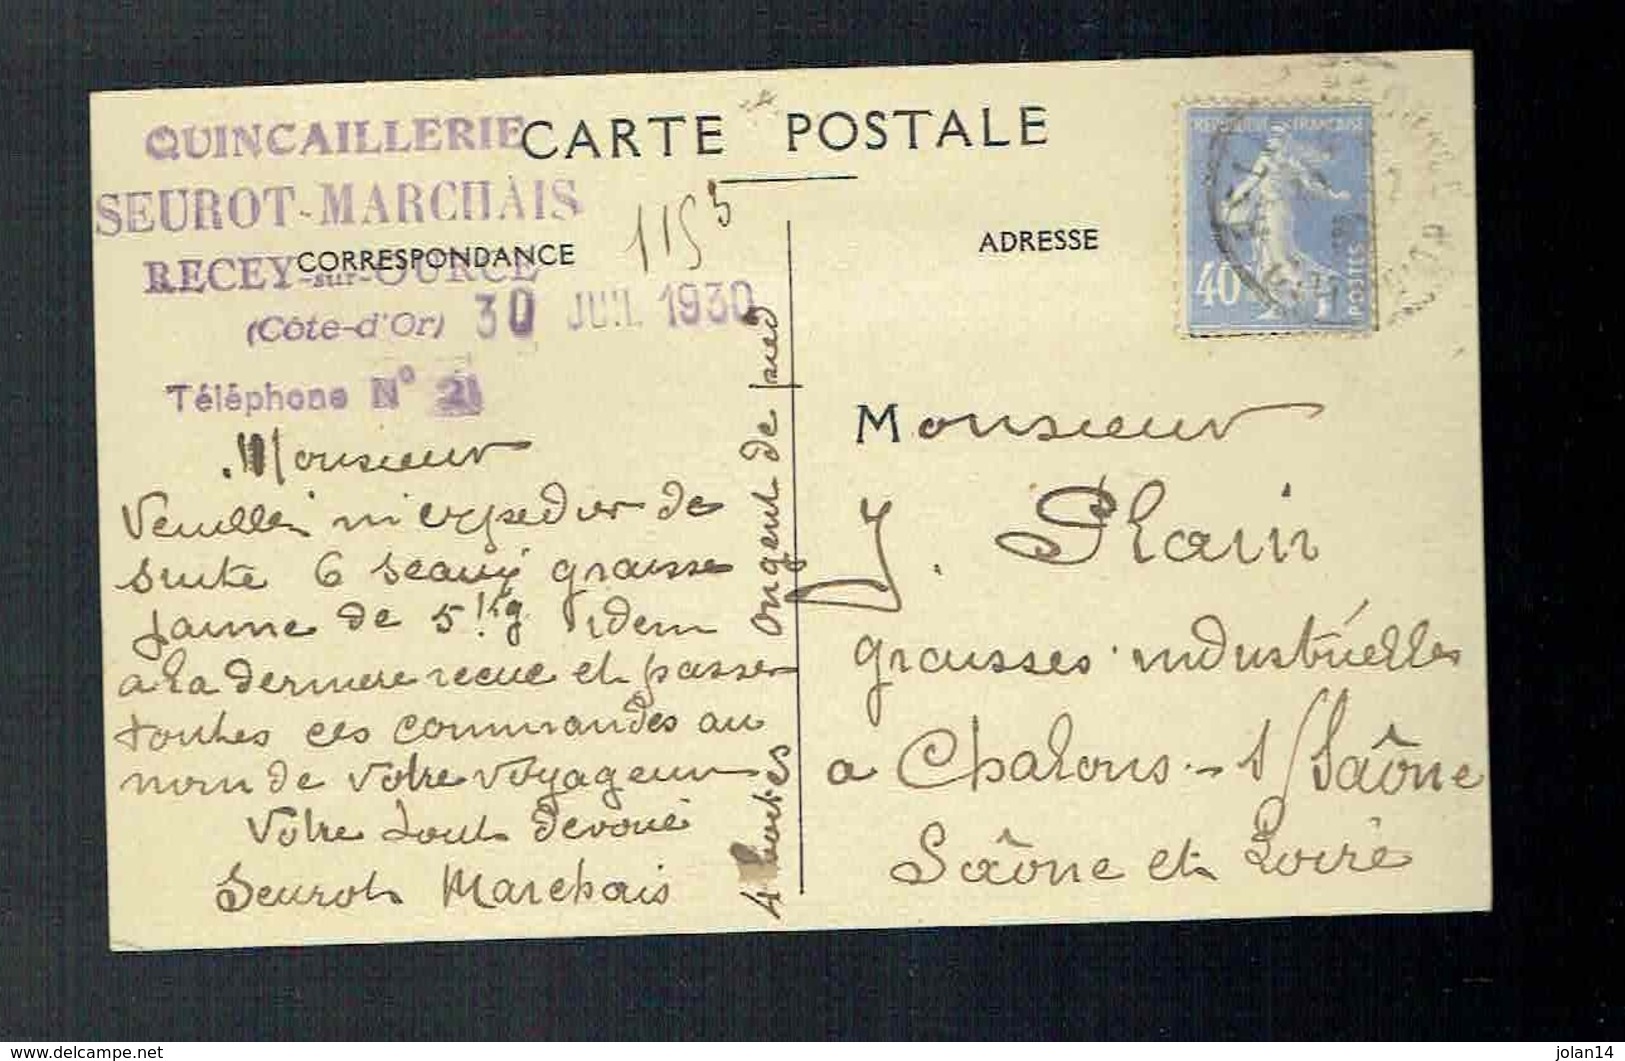 QUINCAILLERIE
SEUROT-MARCHAIS
RECEY-sur-OURCE
(Côte-d'Or)
30 JUIL 1930
Téléphone N° 21
CARTE POSTALE
CORRESPONDANCE
ADRESSE
115 5
REPUBLIQUE FRANÇAISE
40
POSTES
Monsieur
Veuillez m'expedier de
suite 6 seaux graisse
jaune de 5 Kg idem
a la derniere recue et passer
toutes ces commandes au
nom de votre voyageur
Votre tout devoué
Seurot Marchais
4 boites onguent de pied
Monsieur
J. Plain
graisses industrielles
a Chalons - s/Saône
Saône et Loire
delcampe.net
jolan14